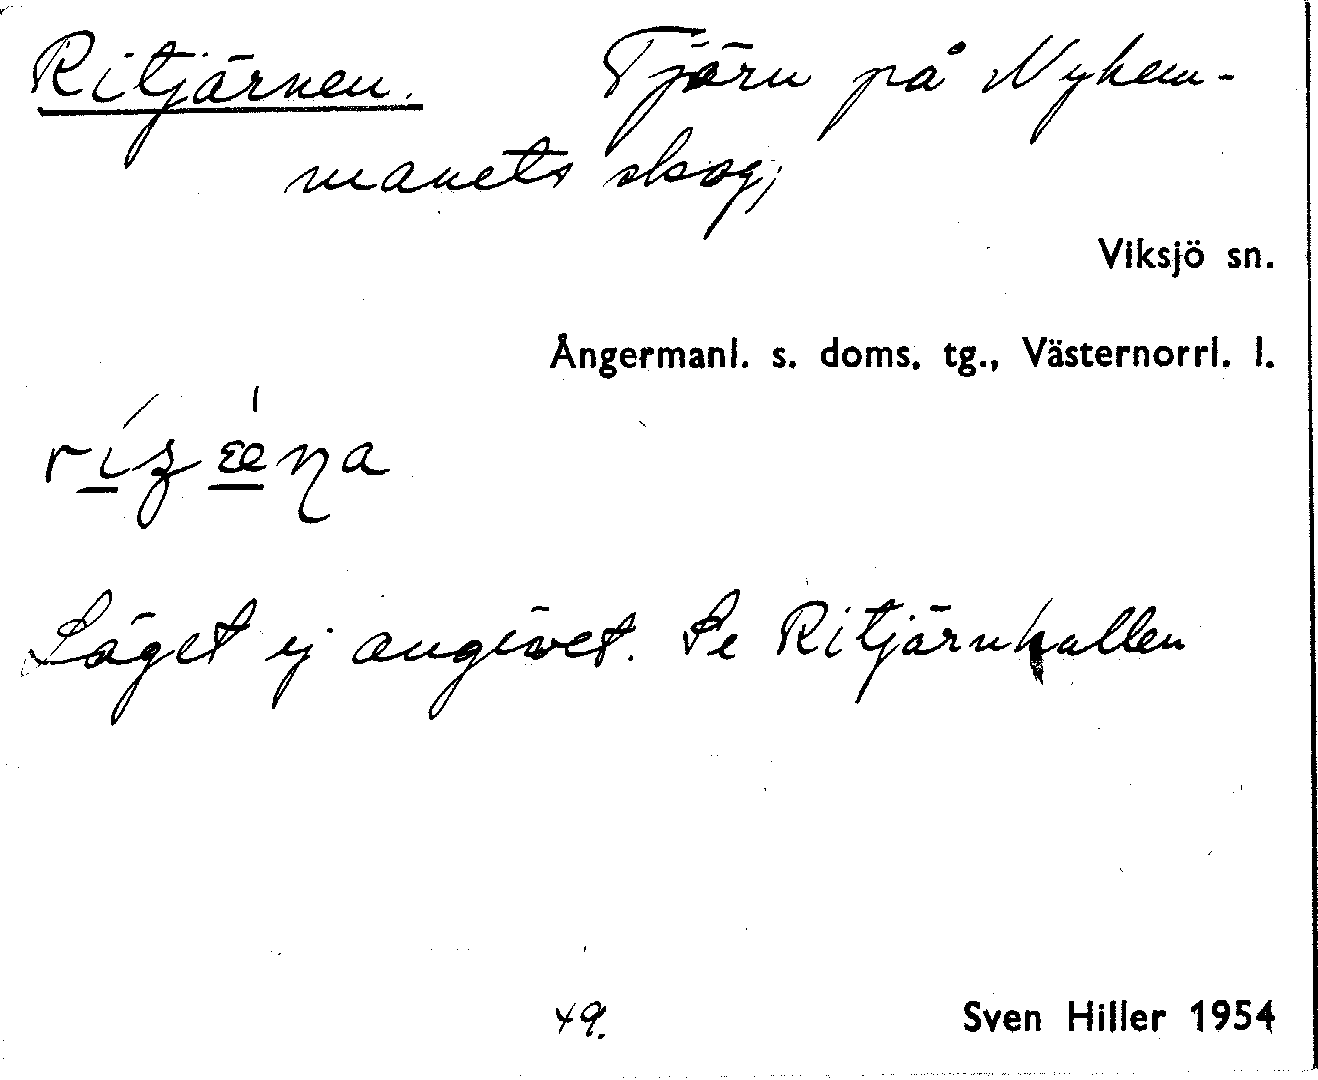 Ritjärnen. Tjärn på Nyhem-
manets skog;
Viksjö sn.
Ångermanl. s. doms. tg., Västernorrl. l.
Läget ej angivet. Se Ritjärnhallen
49.
Sven Hiller 1954